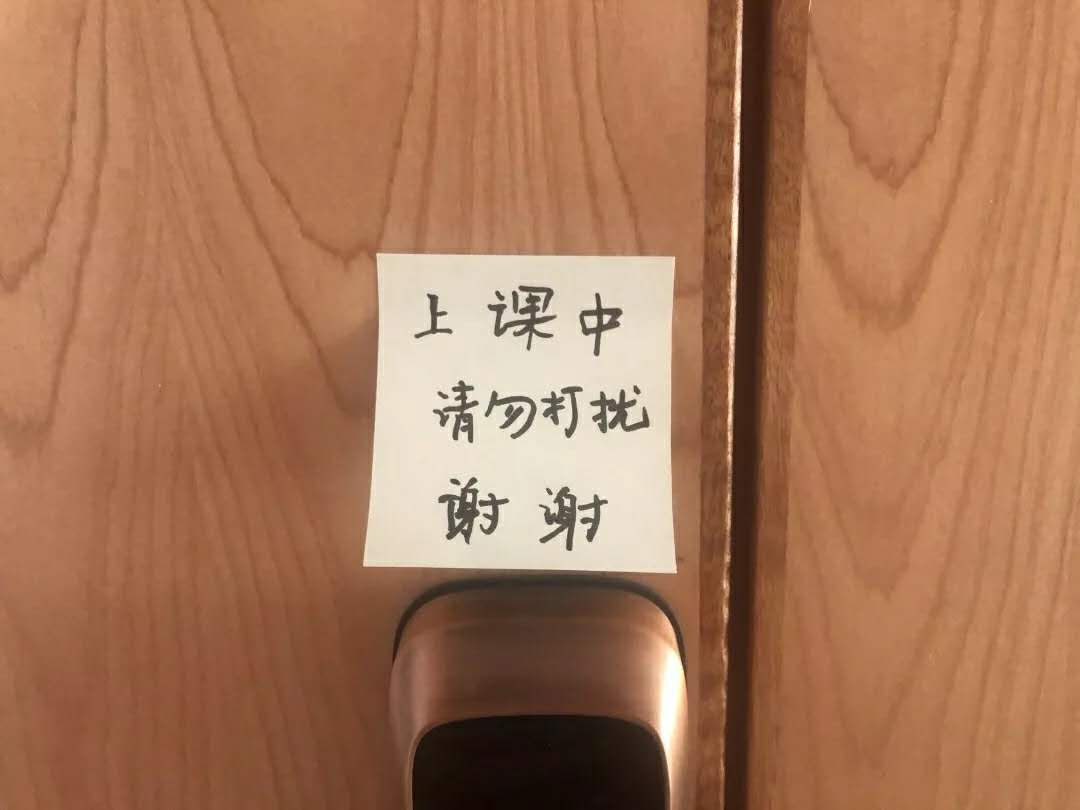 上课中
请勿打扰
谢谢